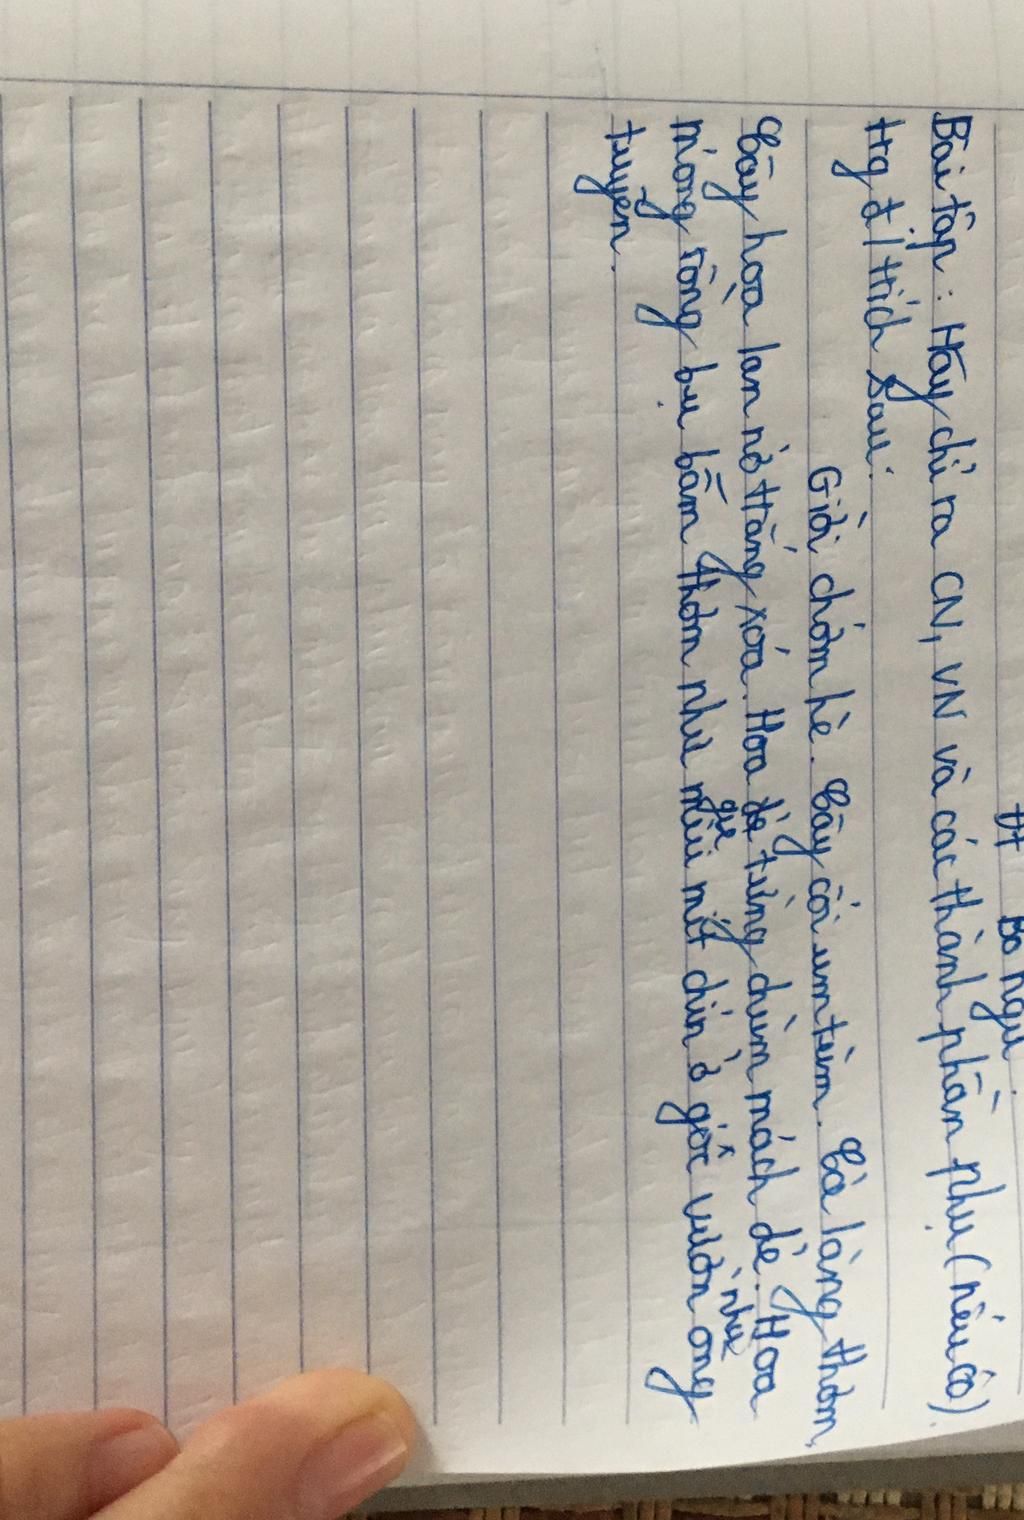 tt Bổ ngữ.
Bài tập: Hãy chỉ ra CN, VN và các thành phần phụ (nếu có)
trg đ/trích sau:
Giời chớm hè. Cây cối um tùm. Cả làng thơm.
Cây hoa lan nở trắng xoá. Hoa dẻ từng chùm mảnh dẻ. Hoa
móng rồng bụ bẫm thơm như mùi mít chín ở góc vườn ông
tuyên.